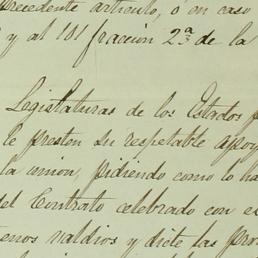 precedente articulo, ó en caso
y al 101 fracción 2ª de la
Legislaturas de los Estados p
le presten su respetable apoy
la unión, pidiendo como lo ha
del Contrato celebrado con e
enos valdios y dicte las pro